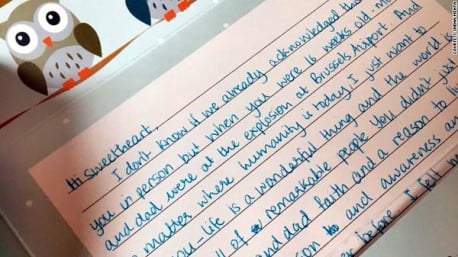 Hi Sweetheart,
I don't know if we already acknowledged
you in person but when you were 16 weeks old -
and dad were at the explosion at Brussels Airport. And
no matter where humanity is today I just want to
you - life is a wonderful thing and the world is
of remarkable people. You didn't just
and dad faith and a reason to
and awareness
before I fell